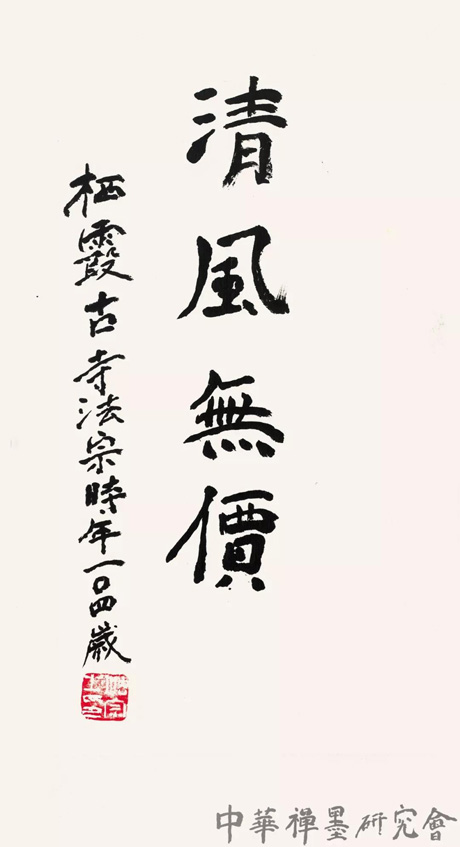 清風無價
栖霞古寺法宗時年一〇四歲
中華禪墨研究會